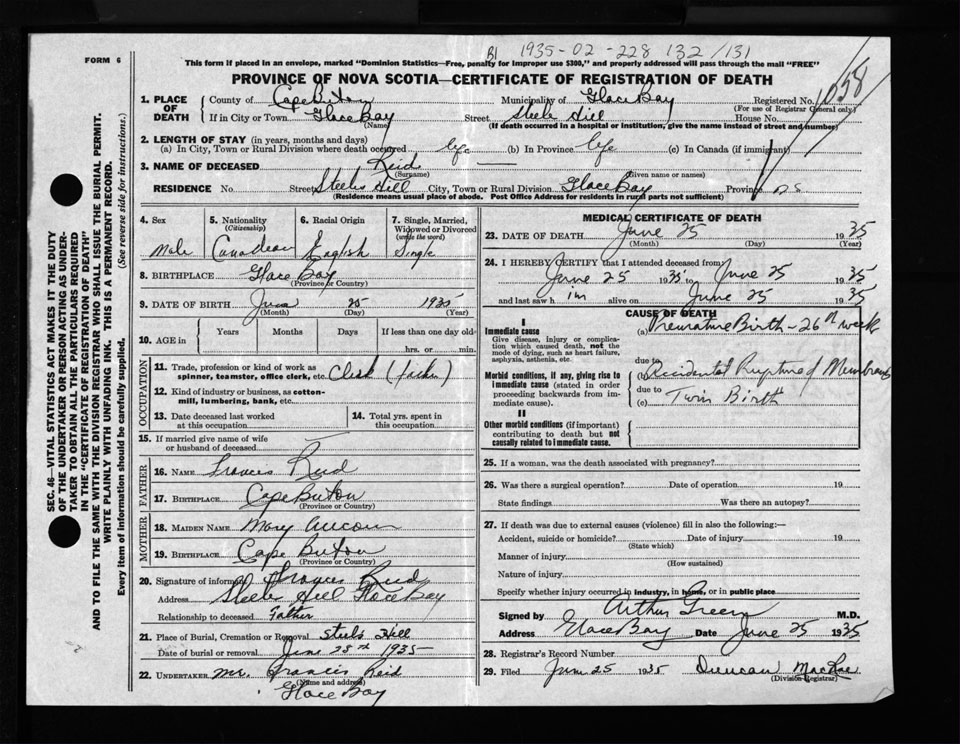 B1 1935-02-228 132/131
FORM 6
This form if placed in an envelope, marked "Dominion Statistics—Free, penalty for improper use $300," and properly addressed will pass through the mail "FREE"
PROVINCE OF NOVA SCOTIA—CERTIFICATE OF REGISTRATION OF DEATH
SEC. 46—VITAL STATISTICS ACT MAKES IT THE DUTY
OF THE UNDERTAKER OR PERSON ACTING AS UNDER-
TAKER TO OBTAIN ALL THE PARTICULARS REQUIRED
IN THE "CERTIFICATE OF REGISTRATION OF DEATH"
AND TO FILE THE SAME WITH THE DIVISION REGISTRAR WHO SHALL ISSUE THE BURIAL PERMIT.
WRITE PLAINLY WITH UNFADING INK. THIS IS A PERMANENT RECORD.
Every item of information should be carefully supplied. (See reverse side for instructions.)
1. PLACE OF DEATH County of Cape Breton Municipality of Glace Bay Registered No.
(For use of Registrar General only)
If in City or Town Glace Bay Street Steele Hill House No.
(Name) (If death occurred in a hospital or institution, give the name instead of street and number)
2. LENGTH OF STAY (in years, months and days)
(a) In City, Town or Rural Division where death occurred life (b) In Province life (c) In Canada (if immigrant)
3. NAME OF DECEASED Reid
(Surname) (Given name or names)
RESIDENCE No. Street Steeles Hill City, Town or Rural Division Glace Bay Province N S
(Residence means usual place of abode. Post Office Address for residents in rural parts not sufficient)
4. Sex 5. Nationality (Citizenship) 6. Racial Origin 7. Single, Married, Widowed or Divorced (write the word)
Male Canadian English Single
8. BIRTHPLACE Glace Bay
(Province or Country)
9. DATE OF BIRTH June 25 1935
(Month) (Day) (Year)
10. AGE in Years Months Days If less than one day old
hrs. or min.
OCCUPATION
11. Trade, profession or kind of work as
spinner, teamster, office clerk, etc. Clerk (father)
12. Kind of industry or business, as cotton-
mill, lumbering, bank, etc.
13. Date deceased last worked at this occupation 14. Total yrs. spent in this occupation
15. If married give name of wife
or husband of deceased
FATHER
16. NAME Francis Reid
17. BIRTHPLACE Cape Breton
(Province or Country)
MOTHER
18. MAIDEN NAME Mary Aucoin
19. BIRTHPLACE Cape Breton
(Province or Country)
20. Signature of informant Francis Reid
Address Steele Hill Glace Bay
Relationship to deceased Father
21. Place of Burial, Cremation or Removal Steels Hill
Date of burial or removal June 25th 1935
22. UNDERTAKER Mr. Francis Reid
(Name and address)
Glace Bay
MEDICAL CERTIFICATE OF DEATH
23. DATE OF DEATH June 25 1935
(Month) (Day) (Year)
24. I HEREBY CERTIFY that I attended deceased from
June 25 1935 to June 25 1935
and last saw him alive on June 25 1935
CAUSE OF DEATH
I
Immediate cause (a) Premature Birth - 26th week
Give disease, injury or complica-
tion which caused death, not the
mode of dying, such as heart failure,
asphyxia, asthenia, etc.
due to
Morbid conditions, if any, giving rise to
immediate cause (stated in order
proceeding backwards from im-
mediate cause).
(b) Accidental Rupture of Membrane
due to
(c) Twin Birth
II
Other morbid conditions (if important)
contributing to death but not
causally related to immediate cause.
25. If a woman, was the death associated with pregnancy?
26. Was there a surgical operation? Date of operation 19
State findings Was there an autopsy?
27. If death was due to external causes (violence) fill in also the following:—
Accident, suicide or homicide? Date of injury 19
(State which)
Manner of injury
(How sustained)
Nature of injury
Specify whether injury occurred in industry, in home, or in public place
Signed by Arthur Green M.D.
Address Glace Bay Date June 25 1935
28. Registrar's Record Number
29. Filed June 25 1935 Duncan MacRae
(Division Registrar)